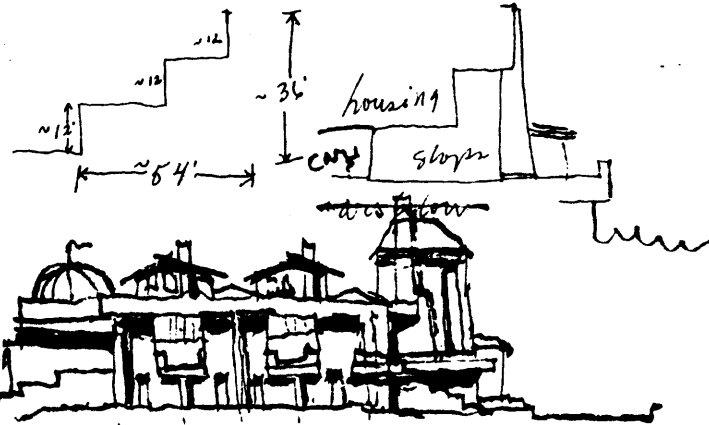 ~12
~12
~12'
~54'
~36'
housing
cars
shops